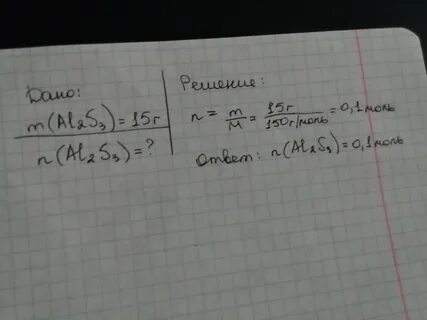 Дано:
m(Al2S3)=15г
n(Al2S3)=?
Решение:
n = m/M = 15г/150г/моль = 0,1моль
Ответ: n(Al2S3)=0,1моль